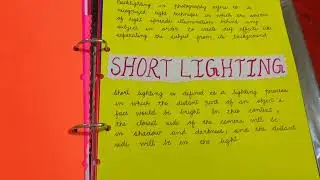 Backlighting in photography refers to a
recognized light technique in which the source
of light spreads illumination behind any
subject in order to create out effects like
separating the subject from its background.
SHORT LIGHTING
Short lighting is defined as a lighting process
in which the distant part of an object's
face would be bright. In this context,
the closest side of the camera will be
in shadow and darkness, and the distant
side will be in the light.